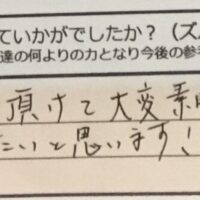 ていかがでしたか？（ズ
達の何よりの力となり今後の参
頂けて大変素
たいと思います！